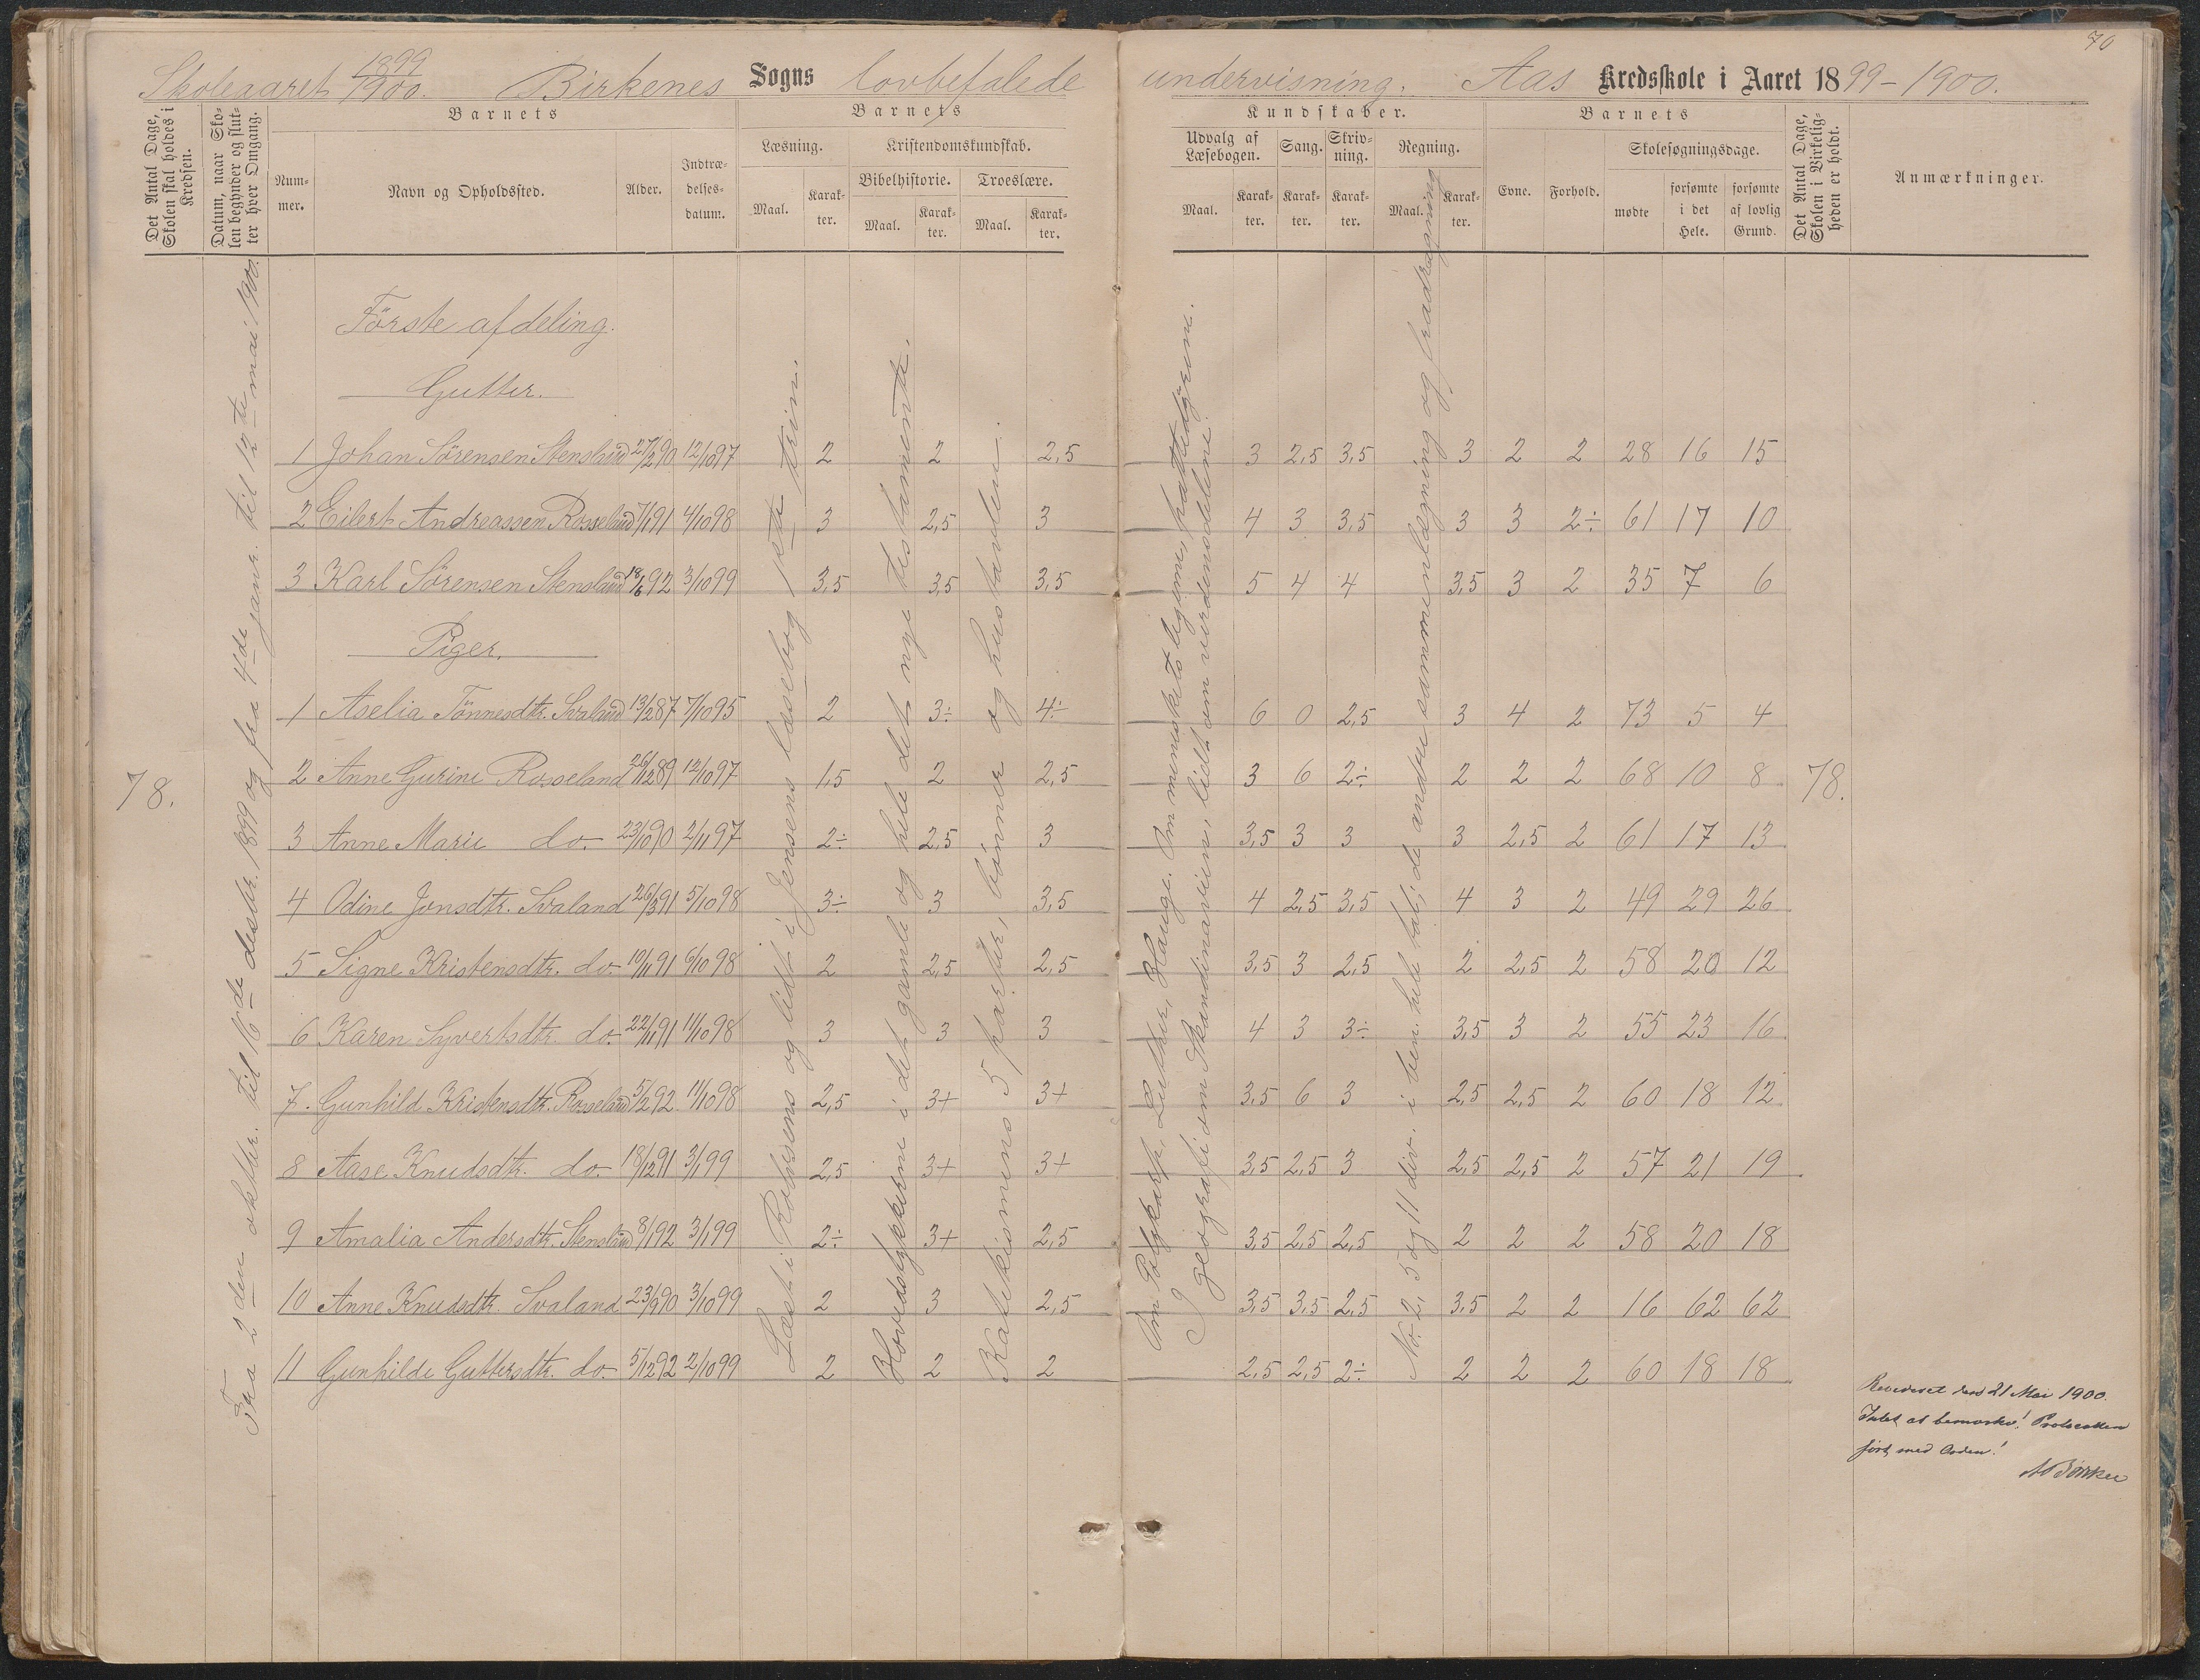 70
Skoleaaret 1899/1900. Birkenes Sogns lovbefalede undervisning. Aas Kredsskole i Aaret 1899-1900.
Det Antal Dage, Skolen skal holdes i Kredsen.
Datum, naar Skolen begynder og slutter hver Omgang.
Barnets
Nummer.
Navn og Opholdssted.
Alder.
Indtrædelsesdatum.
Barnets
Læsning.
Maal.
Karakter.
Kristendomskundskab.
Bibelhistorie.
Maal.
Karakter.
Troeslære.
Maal.
Karakter.
Kundskaber.
Udvalg af Læsebogen.
Maal.
Karakter.
Sang.
Karakter.
Skrivning.
Karakter.
Regning.
Maal.
Karakter.
Barnets
Evne.
Forhold.
Skolesøgningsdage.
mødte
forsømte i det Hele.
forsømte af lovlig Grund.
Det Antal Dage, Skolen i Virkeligheden er holdt.
Anmærkninger.
78.
Fra 2den oktbr. til 16de desbr. 1899 og fra 4de januar. til 12te mai 1900.
Læst i Rolfsens og lidt i Jensens læsebog 1ste trin.
Hovedstykkerne i det gamle og hele det nye testamente.
Katekismens 5 parter, bønner og hustavlen.
Om Polykarp, Luther, Hauge. Om menneskets legeme, pattedyrene.
I geografi om Skandinavien, lidt om verdensdelene.
No. 2, 5 og 11 div. i ben. hele tal; de andre sammenlægning og fradragning
Förste afdeling.
Gutter.
1 Johan Sörensen Stensland 27/2 90 12/10 97 2 2 2,5 3 2,5 3,5 3 2 2 28 16 15
2 Eilert Andreassen Rosseland 7/1 91 4/10 98 3 2,5 3 4 3 3,5 3 3 2÷ 61 17 10
3 Karl Sörensen Stensland 18/6 92 3/10 99 3,5 3,5 3,5 5 4 4 3,5 3 2 35 7 6
Piger.
1 Aselia Tönnesdtr. Svaland 13/2 87 7/10 95 2 3÷ 4÷ 6 0 2,5 3 4 2 73 5 4
2 Anne Gurine Rosseland 26/12 89 12/10 97 1,5 2 2,5 3 6 2÷ 2 2 2 68 10 8 78.
3 Anne Marie do. 23/10 90 2/11 97 2÷ 2,5 3 3,5 3 3 3 2,5 2 61 17 13
4 Odine Jonsdtr. Svaland 26/3 91 5/10 98 3÷ 3 3,5 4 2,5 3,5 4 3 2 49 29 26
5 Signe Kristensdtr. do. 10/11 91 6/10 98 2 2,5 2,5 3,5 3 2,5 2 2,5 2 58 20 12
6 Karen Syvertsdtr. do. 22/11 91 11/10 98 3 3 3 4 3 3÷ 3,5 3 2 55 23 16
7. Gunhild Kristensdtr. Rosseland 5/2 92 11/10 98 2,5 3+ 3+ 3,5 6 3 2,5 2,5 2 60 18 12
8 Aase Knudsdtr. do. 18/12 91 3/1 99 2,5 3+ 3+ 3,5 2,5 3 2,5 2,5 2 57 21 19
9 Amalia Andersdtr. Stensland 8/1 92 3/1 99 2÷ 3+ 2,5 3,5 2,5 2,5 2 2 2 58 20 18
10 Anne Knudsdtr. Svaland 23/9 90 3/10 99 2 3 2,5 3,5 3,5 2,5 3,5 2 2 16 62 62
11 Gunhilde Guttersdtr. do. 5/12 92 2/10 99 2 2 2 2,5 2,5 2÷ 2 2 2 60 18 18
Revideret den 21 Mai 1900.
Intet at bemærke! Protocollen
ført med Orden!